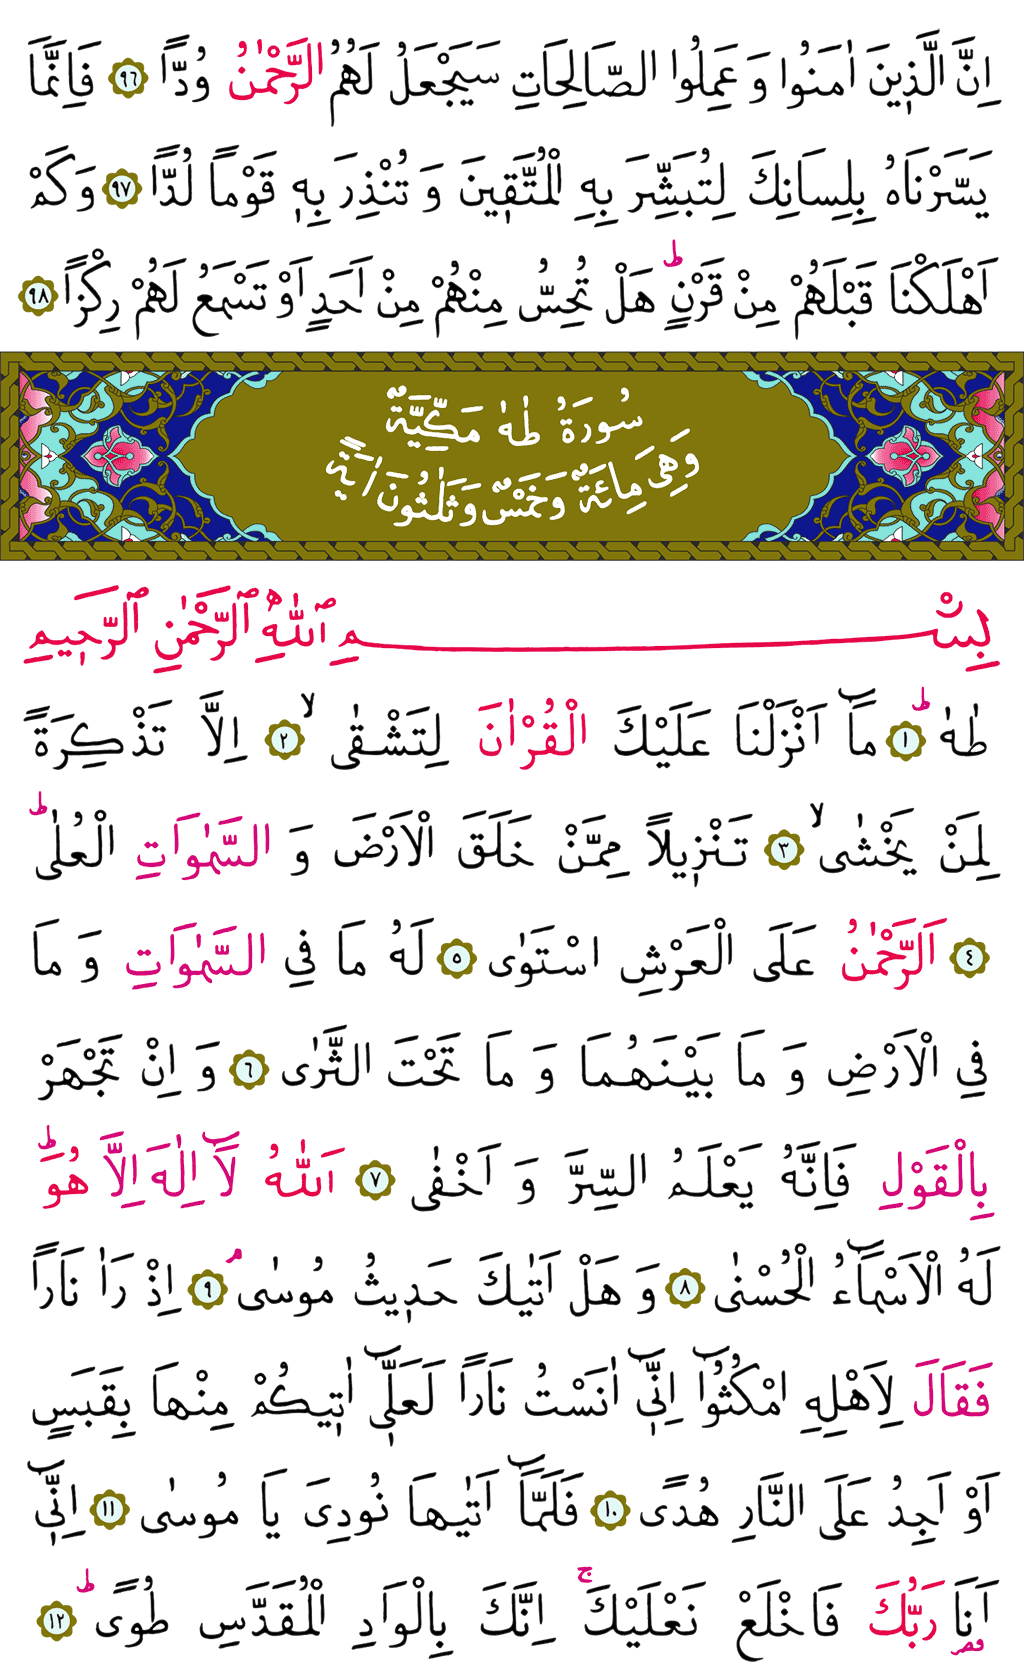 اِنَّ الَّذ۪ينَ اٰمَنُوا وَ عَمِلُوا الصَّالِحَاتِ سَيَجْعَلُ لَهُمُ الرَّحْمٰنُ وُدًّا ﴿٩٦﴾ فَاِنَّمَا
يَسَّرْنَاهُ بِلِسَانِكَ لِتُبَشِّرَ بِهِ الْمُتَّق۪ينَ وَ تُنْذِرَ بِه۪ قَوْمًا لُدًّا ﴿٩٧﴾ وَ كَمْ
اَهْلَكْنَا قَبْلَهُمْ مِنْ قَرْنٍۜ هَلْ تُحِسُّ مِنْهُمْ مِنْ اَحَدٍ اَوْ تَسْمَعُ لَهُمْ رِكْزًا ﴿٩٨﴾
سُورَةُ طٰهٰ مَكِّيَّةٌ
وَهِيَ مِائَةٌ وَخَمْسٌ وَثَلٰثُونَ اٰيَةً
بِسْمِ اللّٰهِ الرَّحْمٰنِ الرَّح۪يمِ
طٰهٰۜ ﴿١﴾ مَٓا اَنْزَلْنَا عَلَيْكَ الْقُرْاٰنَ لِتَشْقٰىۙ ﴿٢﴾ اِلَّا تَذْكِرَةً
لِمَنْ يَخْشٰىۙ ﴿٣﴾ تَنْز۪يلًا مِمَّنْ خَلَقَ الْاَرْضَ وَ السَّمٰوَاتِ الْعُلٰىۜ
﴿٤﴾ اَلرَّحْمٰنُ عَلَى الْعَرْشِ اسْتَوٰى ﴿٥﴾ لَهُ مَا فِي السَّمٰوَاتِ وَ مَا
فِي الْاَرْضِ وَ مَا بَيْنَهُمَا وَ مَا تَحْتَ الثَّرٰى ﴿٦﴾ وَ اِنْ تَجْهَرْ
بِالْقَوْلِ فَاِنَّهُ يَعْلَمُ السِّرَّ وَ اَخْفٰى ﴿٧﴾ اَللّٰهُ لَٓا اِلٰهَ اِلَّا هُوَۜ
لَهُ الْاَسْمَٓاءُ الْحُسْنٰى ﴿٨﴾ وَ هَلْ اَتٰيكَ حَد۪يثُ مُوسٰىۢ ﴿٩﴾ اِذْ رَاٰ نَارًا
فَقَالَ لِاَهْلِهِ امْكُثُٓوا اِنّ۪ٓي اٰنَسْتُ نَارًا لَعَلّ۪ٓي اٰت۪يكُمْ مِنْهَا بِقَبَسٍ
اَوْ اَجِدُ عَلَى النَّارِ هُدًى ﴿١٠﴾ فَلَمَّٓا اَتٰيهَا نُودِيَ يَا مُوسٰى ﴿١١﴾ اِنّ۪ٓي
اَنَا۬ رَبُّكَ فَاخْلَعْ نَعْلَيْكَۚ اِنَّكَ بِالْوَادِ الْمُقَدَّسِ طُوًىۜ ﴿١٢﴾
قصر